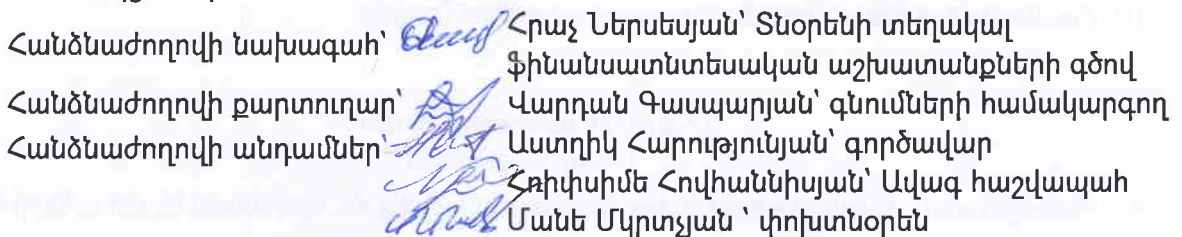 Հանձնաժողովի նախագահ՝ Հրաչ Ներսեսյան՝ Տնօրենի տեղակալ
ֆինանսատնտեսական աշխատանքների գծով
Հանձնաժողովի քարտուղար՝ Վարդան Գասպարյան՝ գնումների համակարգող
Հանձնաժողովի անդամներ՝ Աստղիկ Հարությունյան՝ գործավար
Հռիփսիմե Հովհաննիսյան՝ Ավագ հաշվապահ
Մանե Մկրտչյան՝ փոխտնօրեն